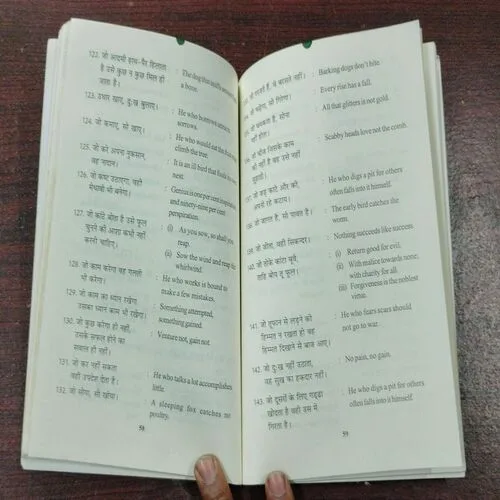 122. जो आदमी हाथ-पैर हिलाता : The dog that
है उसे कुछ न कुछ मिल ही a bone.
जाता है।
123. उधार खाए, दुःख बुलाए। : He who borrows
sorrows.
124. जो कमाए, सो खाए। : He who would eat the
climb the tree.
125. जो करे अपना नुकसान, : It is an ill bird that
वह नादान। nest.
126. जो कष्ट उठाएगा, वही : Genius is one per cent inspiration
मेधावी भी बनेगा। and ninety-nine per cent
perspiration.
127. जो कांटे बोता है उसे फूल : (i) As you sow, so shall you
चुनने की आशा कभी नहीं reap.
करनी चाहिए। (ii) Sow the wind and reap the
whirlwind.
128. जो काम करेगा वह गलती : He who works is bound to
भी करेगा। make a few mistakes.
129. जो काम का ध्यान रखेगा : Something attempted,
उसका ध्यान काम भी रखेगा। something gained.
130. जो कुछ करेगा ही नहीं, : Venture not, gain not.
उसके सफल होने का
सवाल ही नहीं।
131. जो कर नहीं सकता : He who talks a lot accomplishes
वही उपदेश देता है। little.
132. जो सोएगा, सो खोएगा। : A sleeping fox catches no
poultry.
58
जो गरजते हैं, वे बरसते नहीं। : Barking dogs don't bite.
जो चढ़ेगा, सो गिरेगा। : Every rise has a fall.
जो चमकता है, सोना : All that glitters is not gold.
नहीं होता।
जो चीज जिसके काम : Scabby heads love not the comb.
की नहीं है वह उसे नहीं
सुहाती।
जो जड़ काटे और की, : He who digs a pit for others
अपनी रहे कटाय। often falls into it himself.
जो जागत है, सो पावत है। : The early bird catches the
worm.
जो जीता, वही सिकन्दर। : Nothing succeeds like success.
140. जो तोके कांटा बुवै, : (i) Return good for evil.
ताहि बोय तू फूल। (ii) With malice towards none,
with charity for all.
(iii) Forgiveness is the noblest
virtue.
141. जो तूफान से लड़ने की : He who fears scars should
हिम्मत न रखता हो वह not go to war.
हिम्मत दिखाने से बाज आए।
142. जो दुःख नहीं उठाता, : No pain, no gain.
वह सुख का हकदार नहीं।
143. जो दूसरों के लिए गड्ढा : He who digs a pit for others
खोदता है वही उस में often falls into it himself.
गिरता है।
59